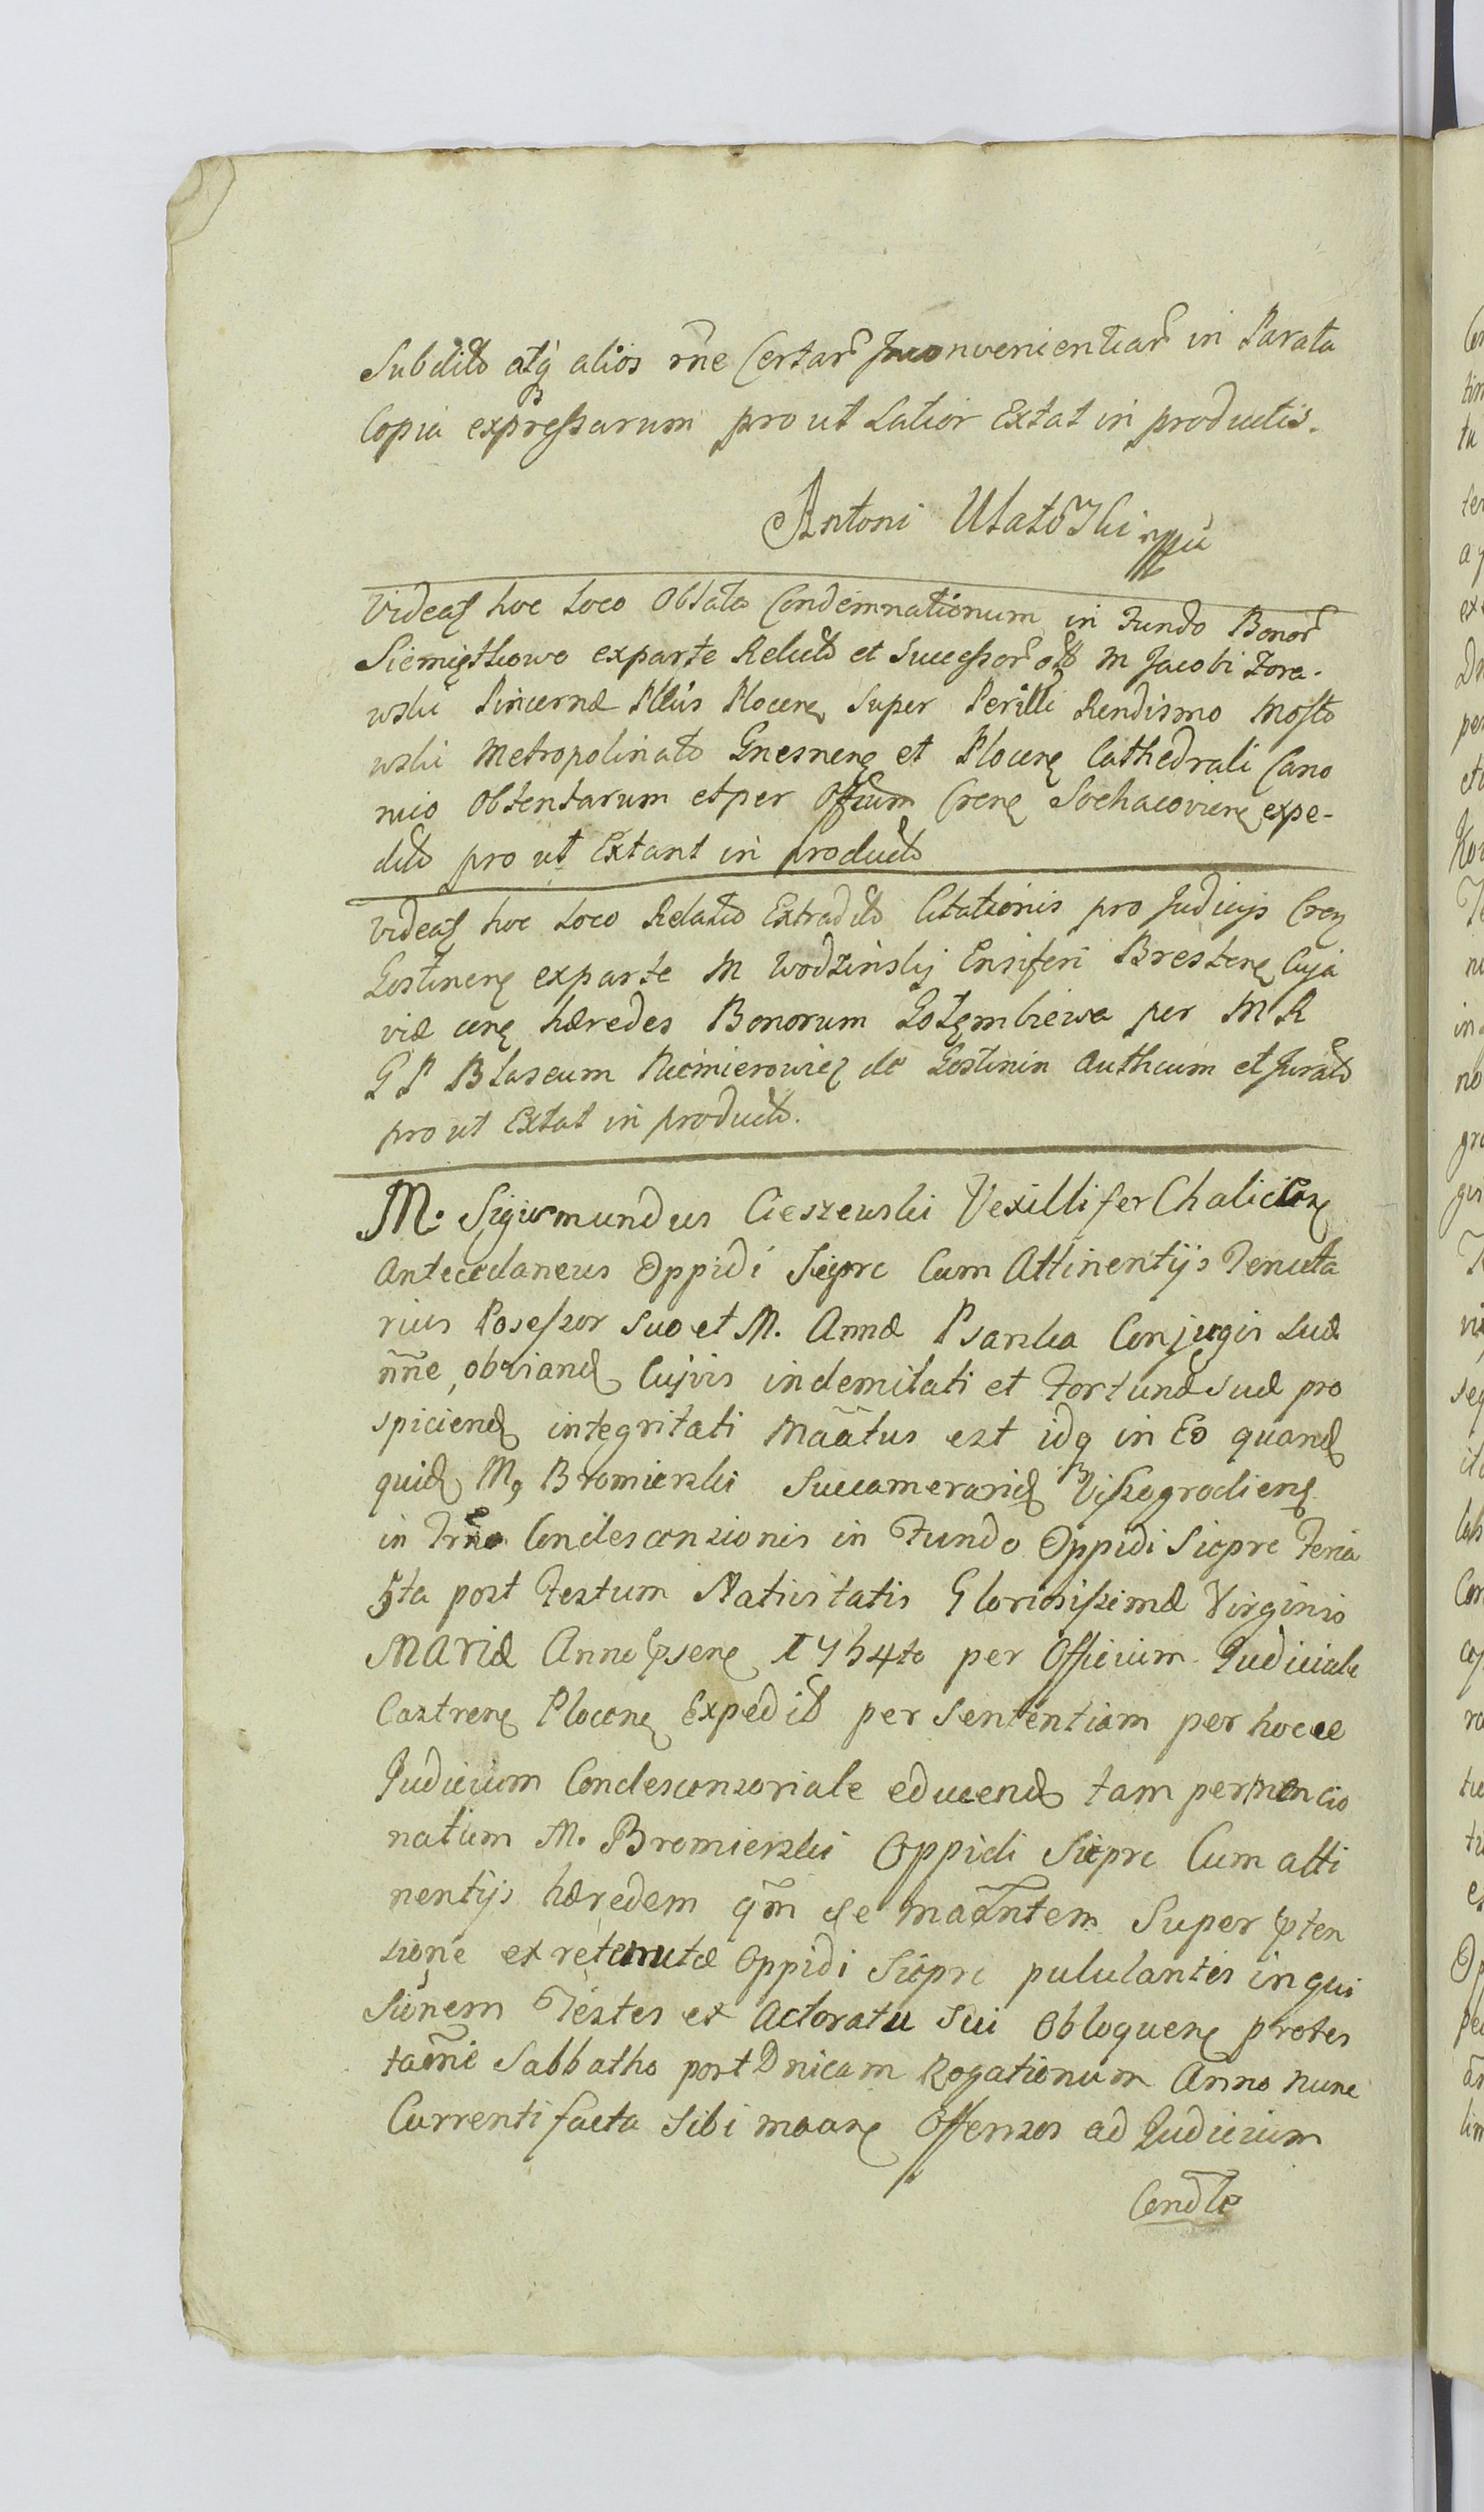 Subdito atq alios rne Certar Inconvenientiar in Parata
Copia expressarum pro ut Latior Extat in productis.
Antoni Ulatowski mpa
Videat hoc Loco Oblata Condemnationum in Fundo Bonor
Siemiątkowo exparte Relicto et Successor olo M Jacobi Zora-
wski Pincernæ Pltis Plocen Super Perilli Rendismo Mosto
wski Metropolinato Gnesnen et Plocen Cathedrali Cano
nico Obtentarum et per Offium Cren Sochacovien expe-
dito pro ut Extant in producto
Videat hoc Loco Relatio Extradito Citationis pro Judicijs Cren
Gostinen exparte M Wodzinskij Ensiferi Bresten Cuja
viæ cen hæredes Bonorum Gołęmbiewa per M R
G P Blaseum Niemierowicz de Gostinin authcum et Jurato
pro ut Extat in producto.
M. Sigismundus Cieszewski Vexillifer
Antecedaneus Oppidi Sieprc Cum Attinentijs Tenuta
rius Posessor suo et M. Annæ Psarska Conjugis suæ
nne, obviand Cujvis indemitati et Fortunæ suæ pro
spiciend integritati Maatus est idq in Eo quand
quid M, Bromierski Succamerarid Vissogrodiens
in Trno Condescensionis in Fundo Oppidi Sieprc Feria
5ta post Festum Nativitatis Gloriosissimæ Virginis
MARIÆ Anno psene 1754to per Officium Judiciale
Castren Plocen Expedito per Sententiam per hocce
Judicium Condescensoriale educend tam permencio
natum M. Bromierski Oppidi Sieprc Cum atti
nentijs hæredem qm se maantem Super pten
sione ex retenutæ Oppidi Sieprc pululantes inqui
sionem Testes ex Actoratu sui Obloquen protes
taonie Sabbatho post Dnicam Rogationum Anno nunc
Currenti facta sibi maare Offensos ad Judicium
Condle